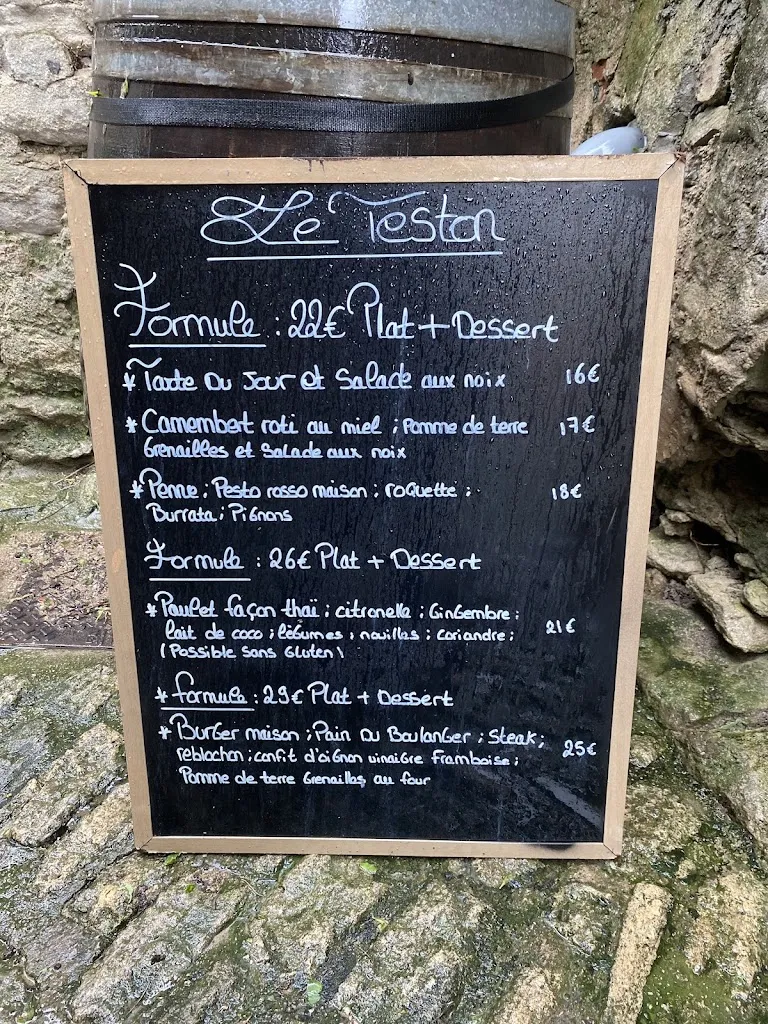 Le Teston
Formule : 22€ Plat + Dessert
* Tarte Du Jour et Salade aux noix 16€
* Camembert roti au miel ; Pomme de terre 17€
Grenailles et Salade aux noix
* Penne ; Pesto rosso maison ; roquette ; 18€
Burrata ; Pignons
Formule : 26€ Plat + Dessert
* Poulet façon thaï ; citronelle ; Gingembre ;
lait de coco ; légumes ; nouilles ; coriandre ; 21€
(Possible Sans Gluten)
* formule : 29€ Plat + Dessert
* Burger maison ; Pain Du Boulanger ; Steak ;
reblochon ; confit d'oignon vinaigre Framboise ; 25€
Pomme de terre Grenailles au four